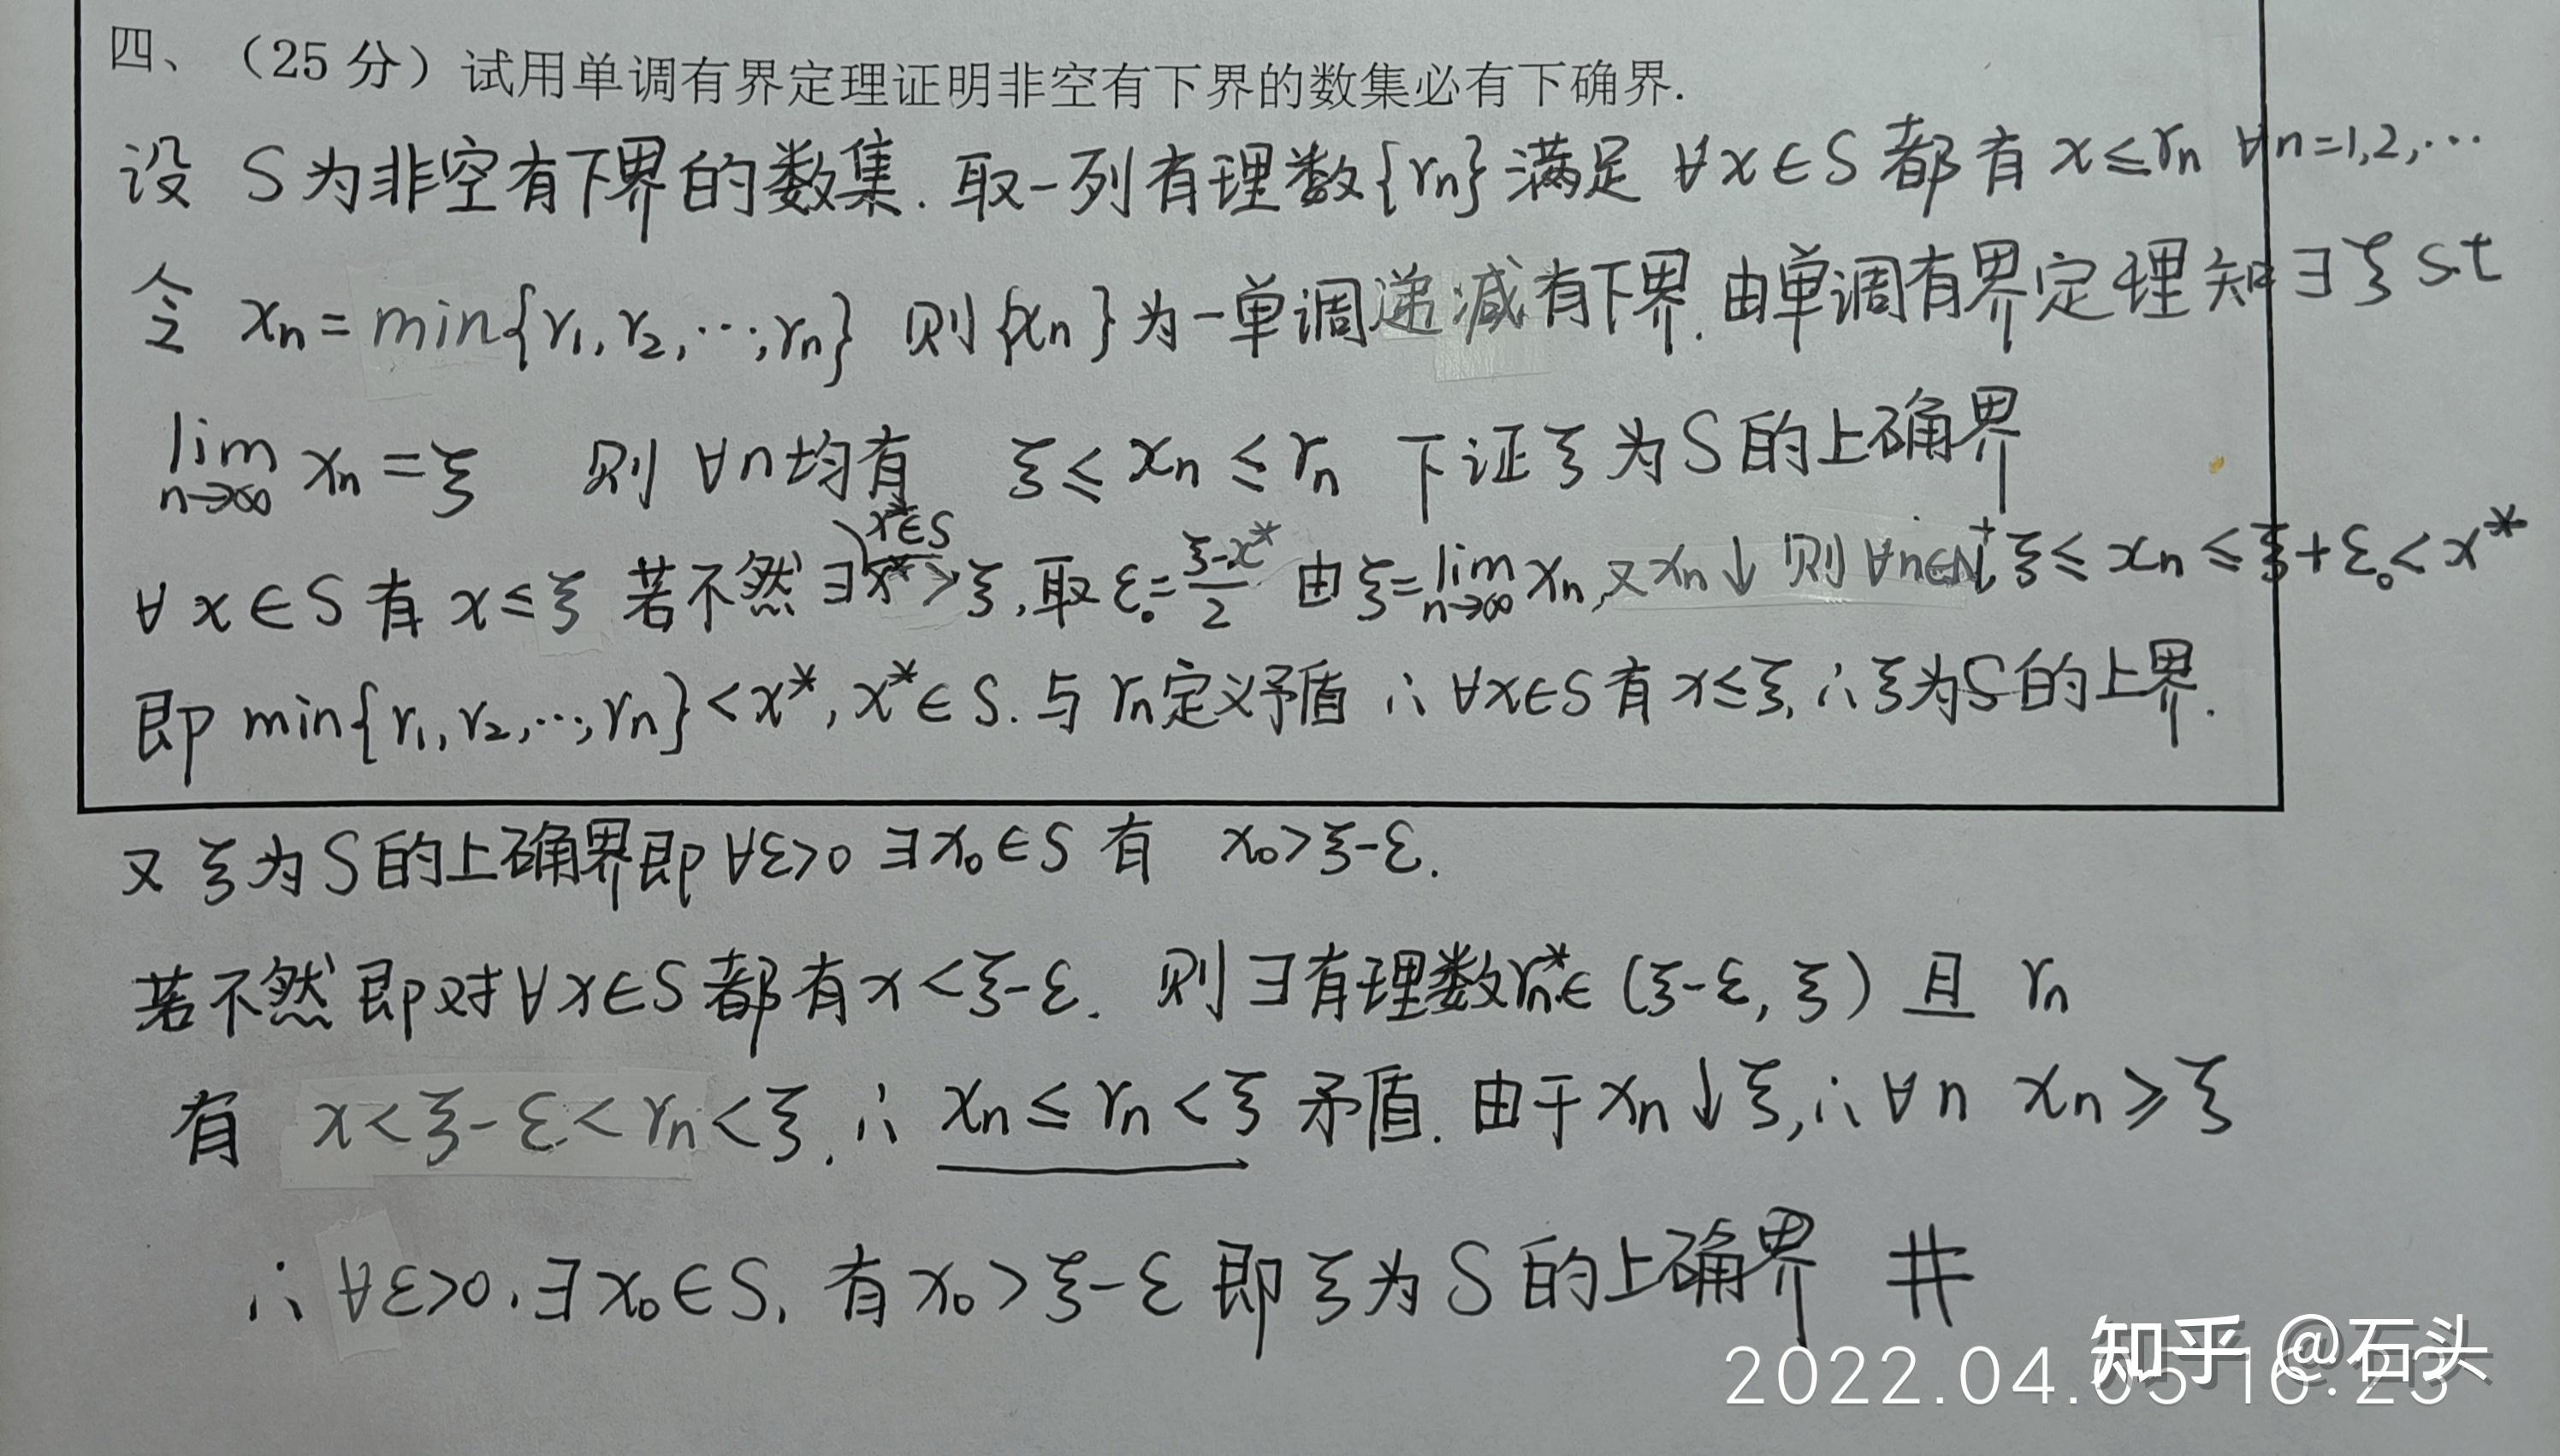 四、（25 分）试用单调有界定理证明非空有下界的数集必有下确界.
设 S为非空有下界的数集. 取一列有理数{rₙ}满足 ∀x∈S 都有 x≤rₙ ∀n=1,2,…
令 xₙ = min{r₁, r₂, …, rₙ} 则{xₙ}为一单调递减有下界. 由单调有界定理知∃ξ s.t
lim n→∞ xₙ = ξ 则 ∀n均有 ξ ≤ xₙ ≤ rₙ 下证ξ为S的上确界
x*∈S
∀x∈S 有 x≤ξ 若不然 ∃x*>ξ, 取 ε₀ = (ξ-x*)/2 由 ξ=lim n→∞ xₙ, 又 xₙ↓ 则 ∀n∈N⁺, ξ≤ xₙ ≤ξ+ε₀<x*
即 min{r₁, r₂, …, rₙ}<x*, x*∈S. 与 rₙ定义矛盾 ∴ ∀x∈S 有 x≤ξ, ∴ξ为S的上界.
又 ξ为S的上确界即 ∀ε>0 ∃x₀∈S 有 x₀>ξ-ε.
若不然 即对∀x∈S 都有 x<ξ-ε. 则∃有理数rₙ*∈(ξ-ε, ξ) 且 rₙ
有 x<ξ-ε<rₙ<ξ. ∴ xₙ≤rₙ<ξ 矛盾. 由于xₙ↓ξ, ∴ ∀n xₙ≥ξ
∴ ∀ε>0, ∃x₀∈S, 有 x₀>ξ-ε 即ξ为S的上确界 #
知乎 @石头
2022.04.05 16:23